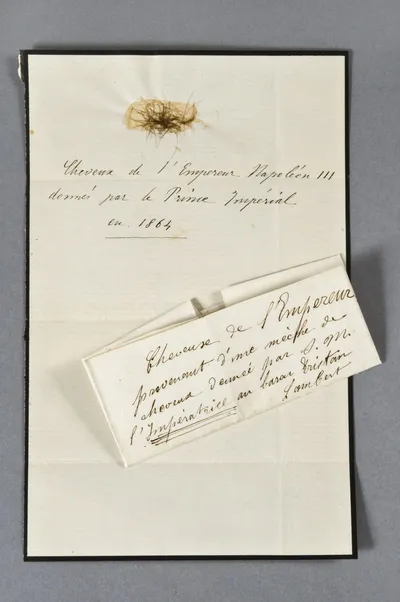 Cheveux de l'Empereur Napoléon III
donnés par le Prince Impérial
en 1864
Cheveux de l'Empereur
provenant d'une mèche de
cheveux donnée par S. M.
l'Impératrice au baron Tristan
Lambert